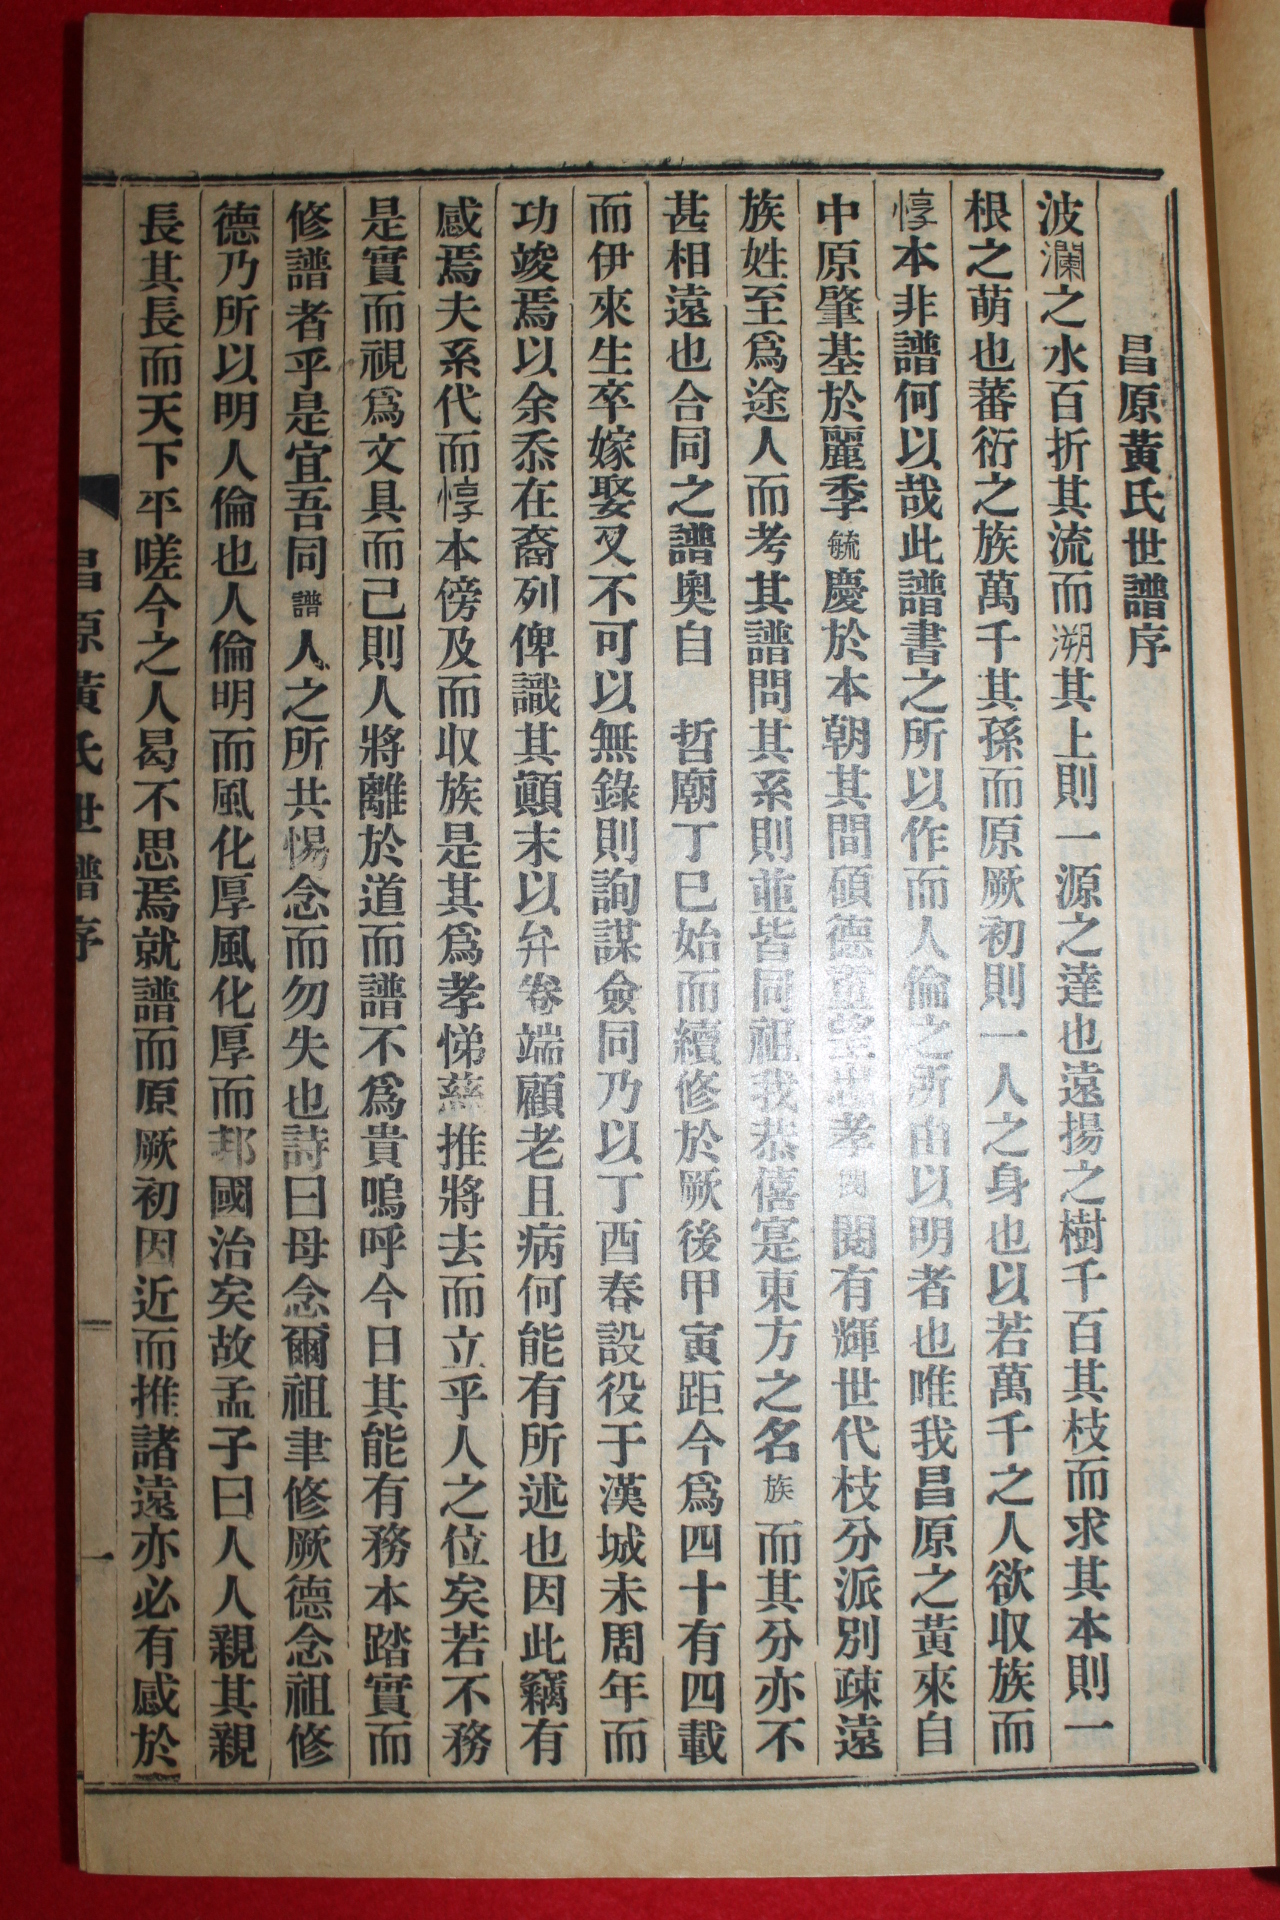 昌原黃氏世譜序
波瀾之水百折其流而溯其上則一源之達也遠揚之樹千百其枝而求其本則一
根之萌也蕃衍之族萬千其孫而原厥初則一人之身也以若萬千之人欲收族而
惇本非譜何以哉此譜書之所以作而人倫之所由以明者也唯我昌原之黃來自
中原肇基於麗季毓慶於本朝其間碩德重望忠孝閥閱有輝世代枝分派別疎遠
族姓至爲途人而考其譜問其系則並皆同祖我恭僖寔東方之名族而其分亦不
甚相遠也合同之譜奧自 哲廟丁巳始而續修於厥後甲寅距今爲四十有四載
而伊來生卒嫁娶又不可以無錄則詢謀僉同乃以丁酉春設役于漢城未周年而
功竣焉以余忝在裔列俾識其顚末以弁卷端顧老且病何能有所述也因此竊有
感焉夫系代而惇本傍及而收族是其爲孝悌玆推將去而立乎人之位矣若不務
是實而視爲文具而己則人將離於道而譜不爲貴嗚呼今日其能有務本踏實而
修譜者乎是宜吾同譜人之所共惕念而勿失也詩曰毋念爾祖聿修厥德念祖修
德乃所以明人倫也人倫明而風化厚風化厚而邦國治矣故孟子曰人人親其親
長其長而天下平嗟今之人曷不思焉就譜而原厥初因近而推諸遠亦必有感於
昌原黃氏世譜序
一